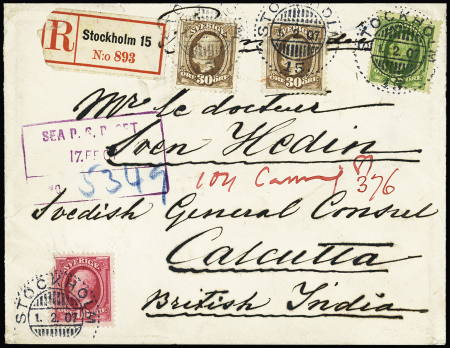 R Stockholm 15
N:o 893
SVERIGE
30 ÖRE 30 ÖRE
STOCKHOLM
1.2.07
15
STOCKHOLM
1.2.07
15
Mr le docteur
SEA P.
17 FE
Sven Hedin
5349
104
376
Swedish General Consul
Calcutta
British India
SVERIGE
STOCKHOLM
1.2.07